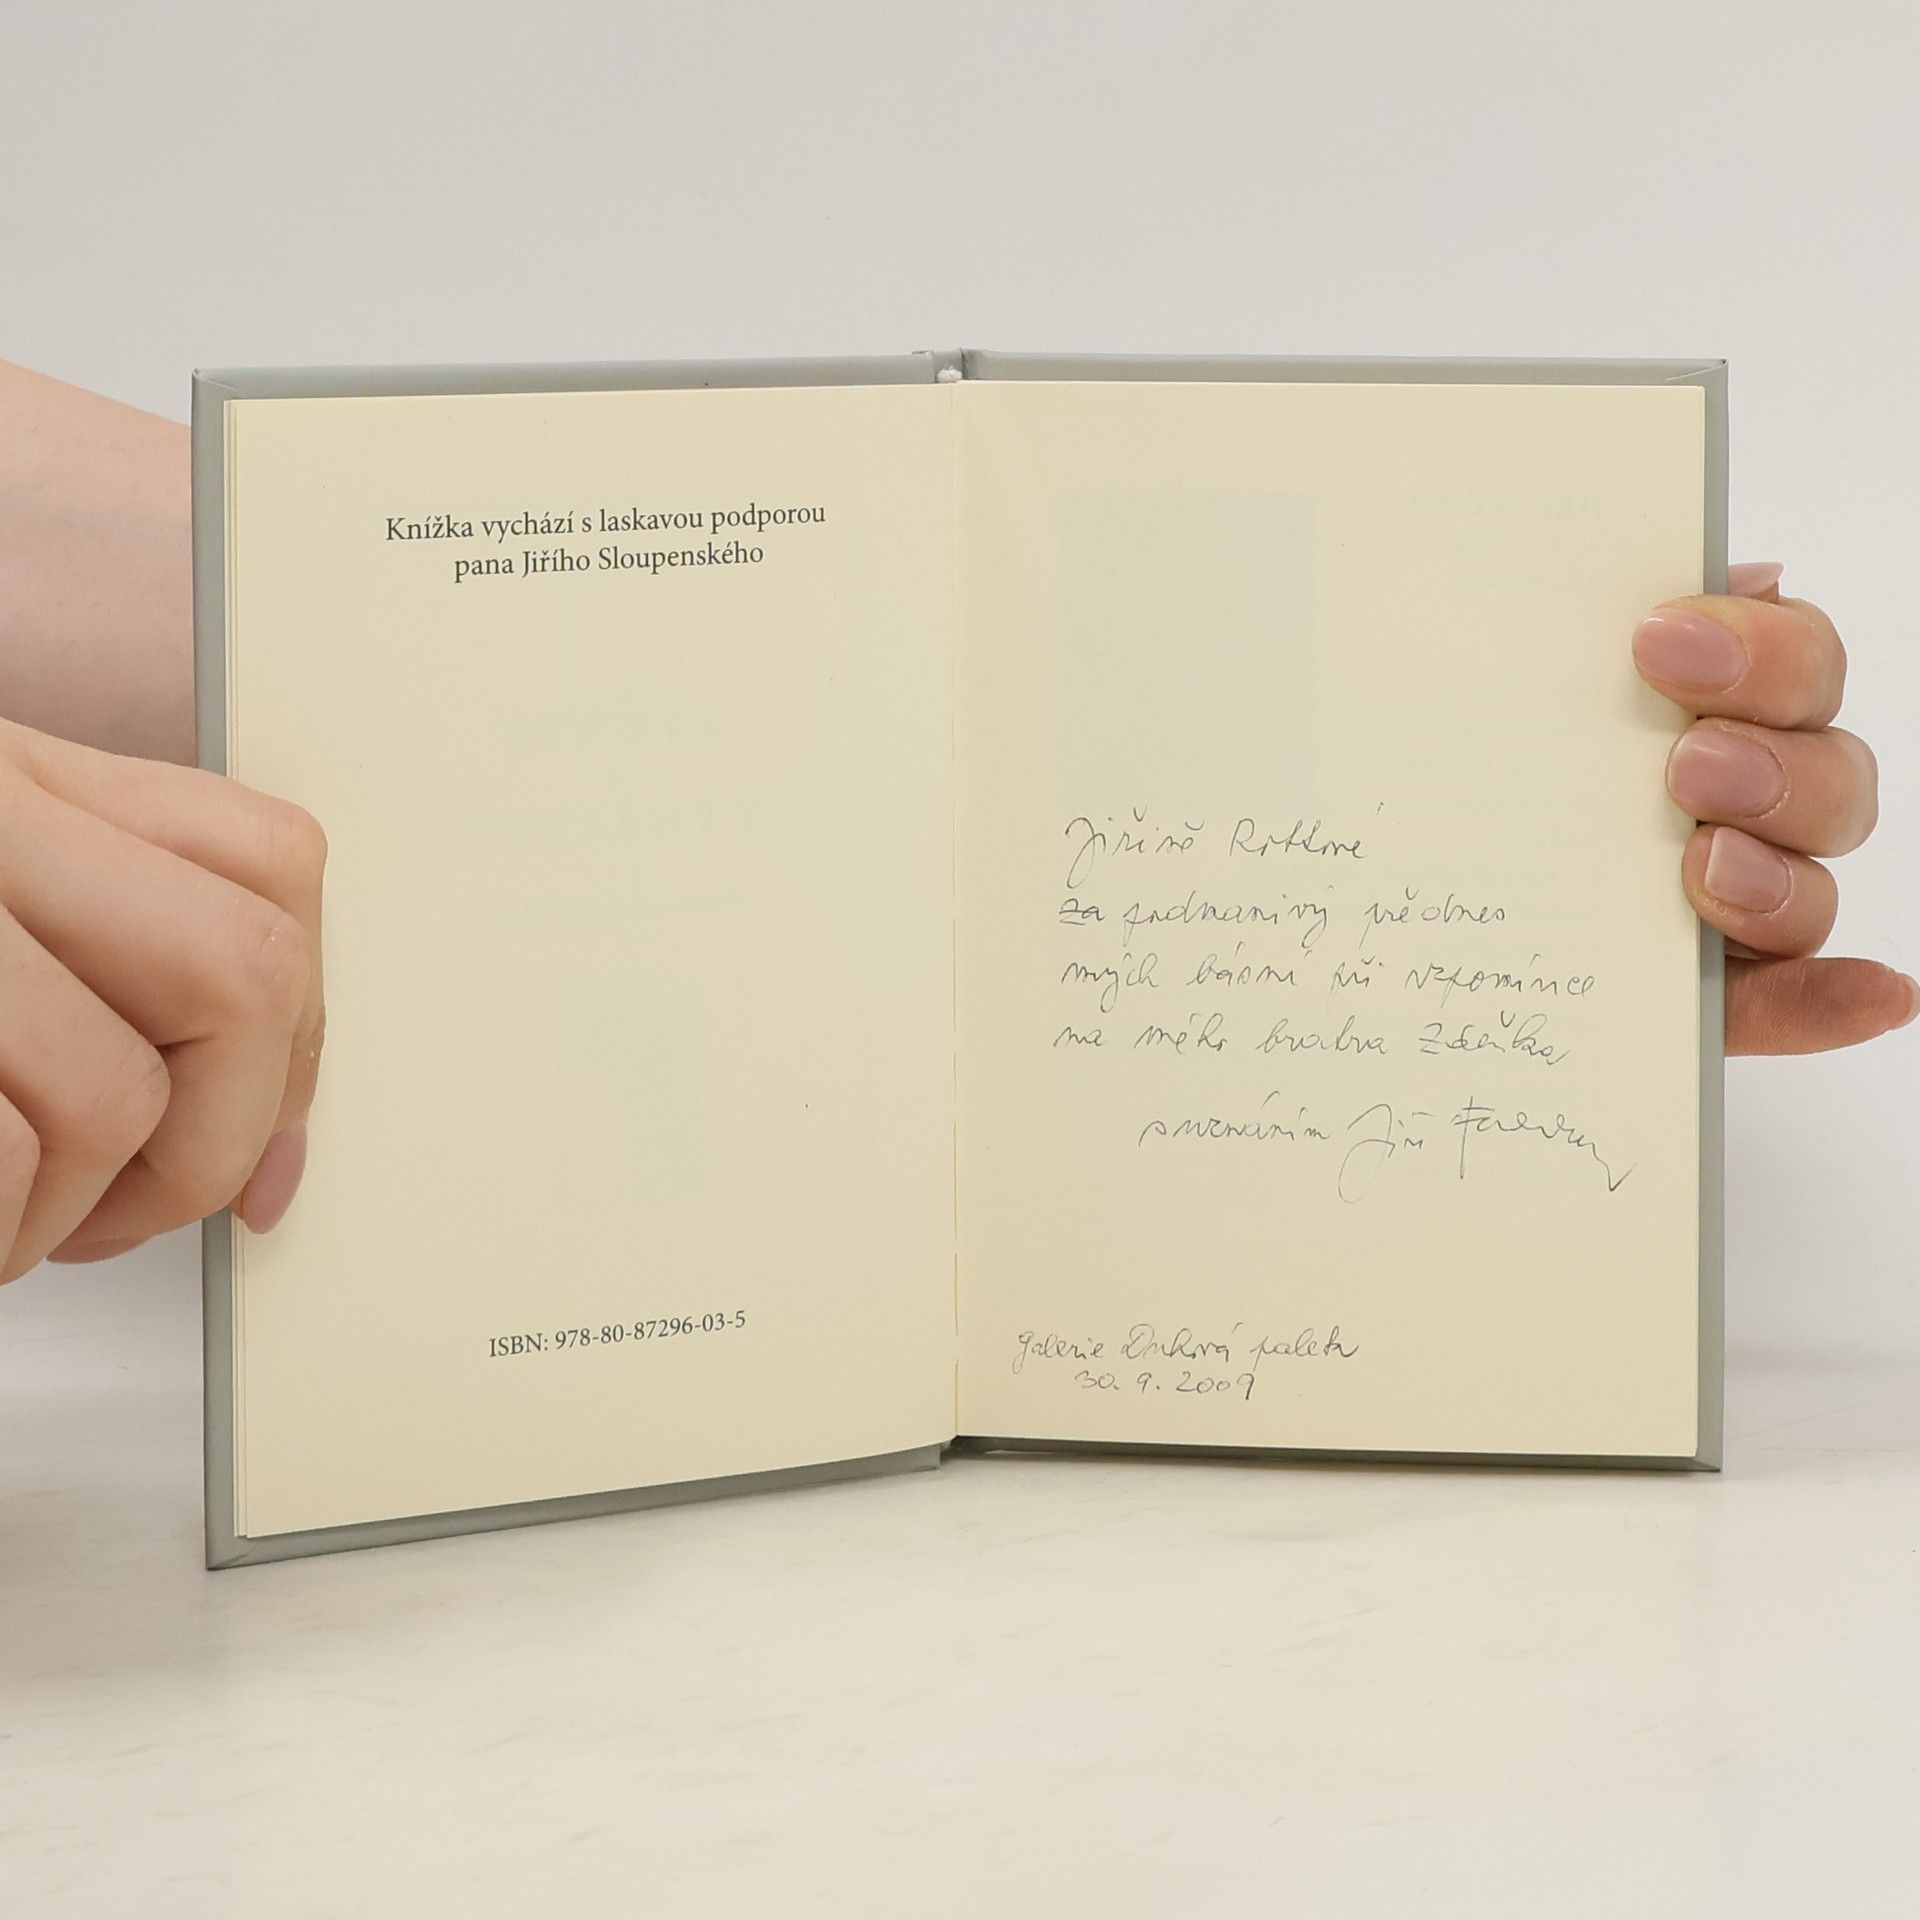 Knížka vychází s laskavou podporou
pana Jiřího Sloupenského
ISBN: 978-80-87296-03-5
Jiřině Rottové
za podmanivý přednes
mých básní při vzpomínce
na mého bratra Zdeňka
s uznáním Jiří
Galerie Dubová paleta
30. 9. 2009